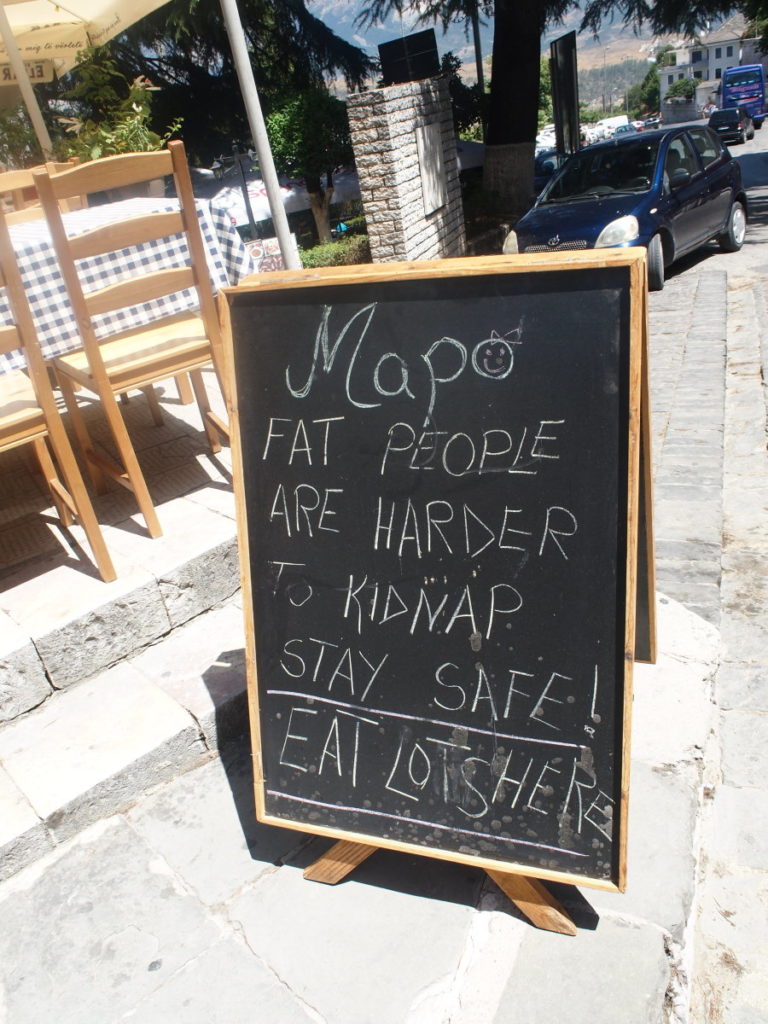 Mapo
FAT PEOPLE
ARE HARDER
TO KIDNAP
STAY SAFE!
EAT LOTS HERE